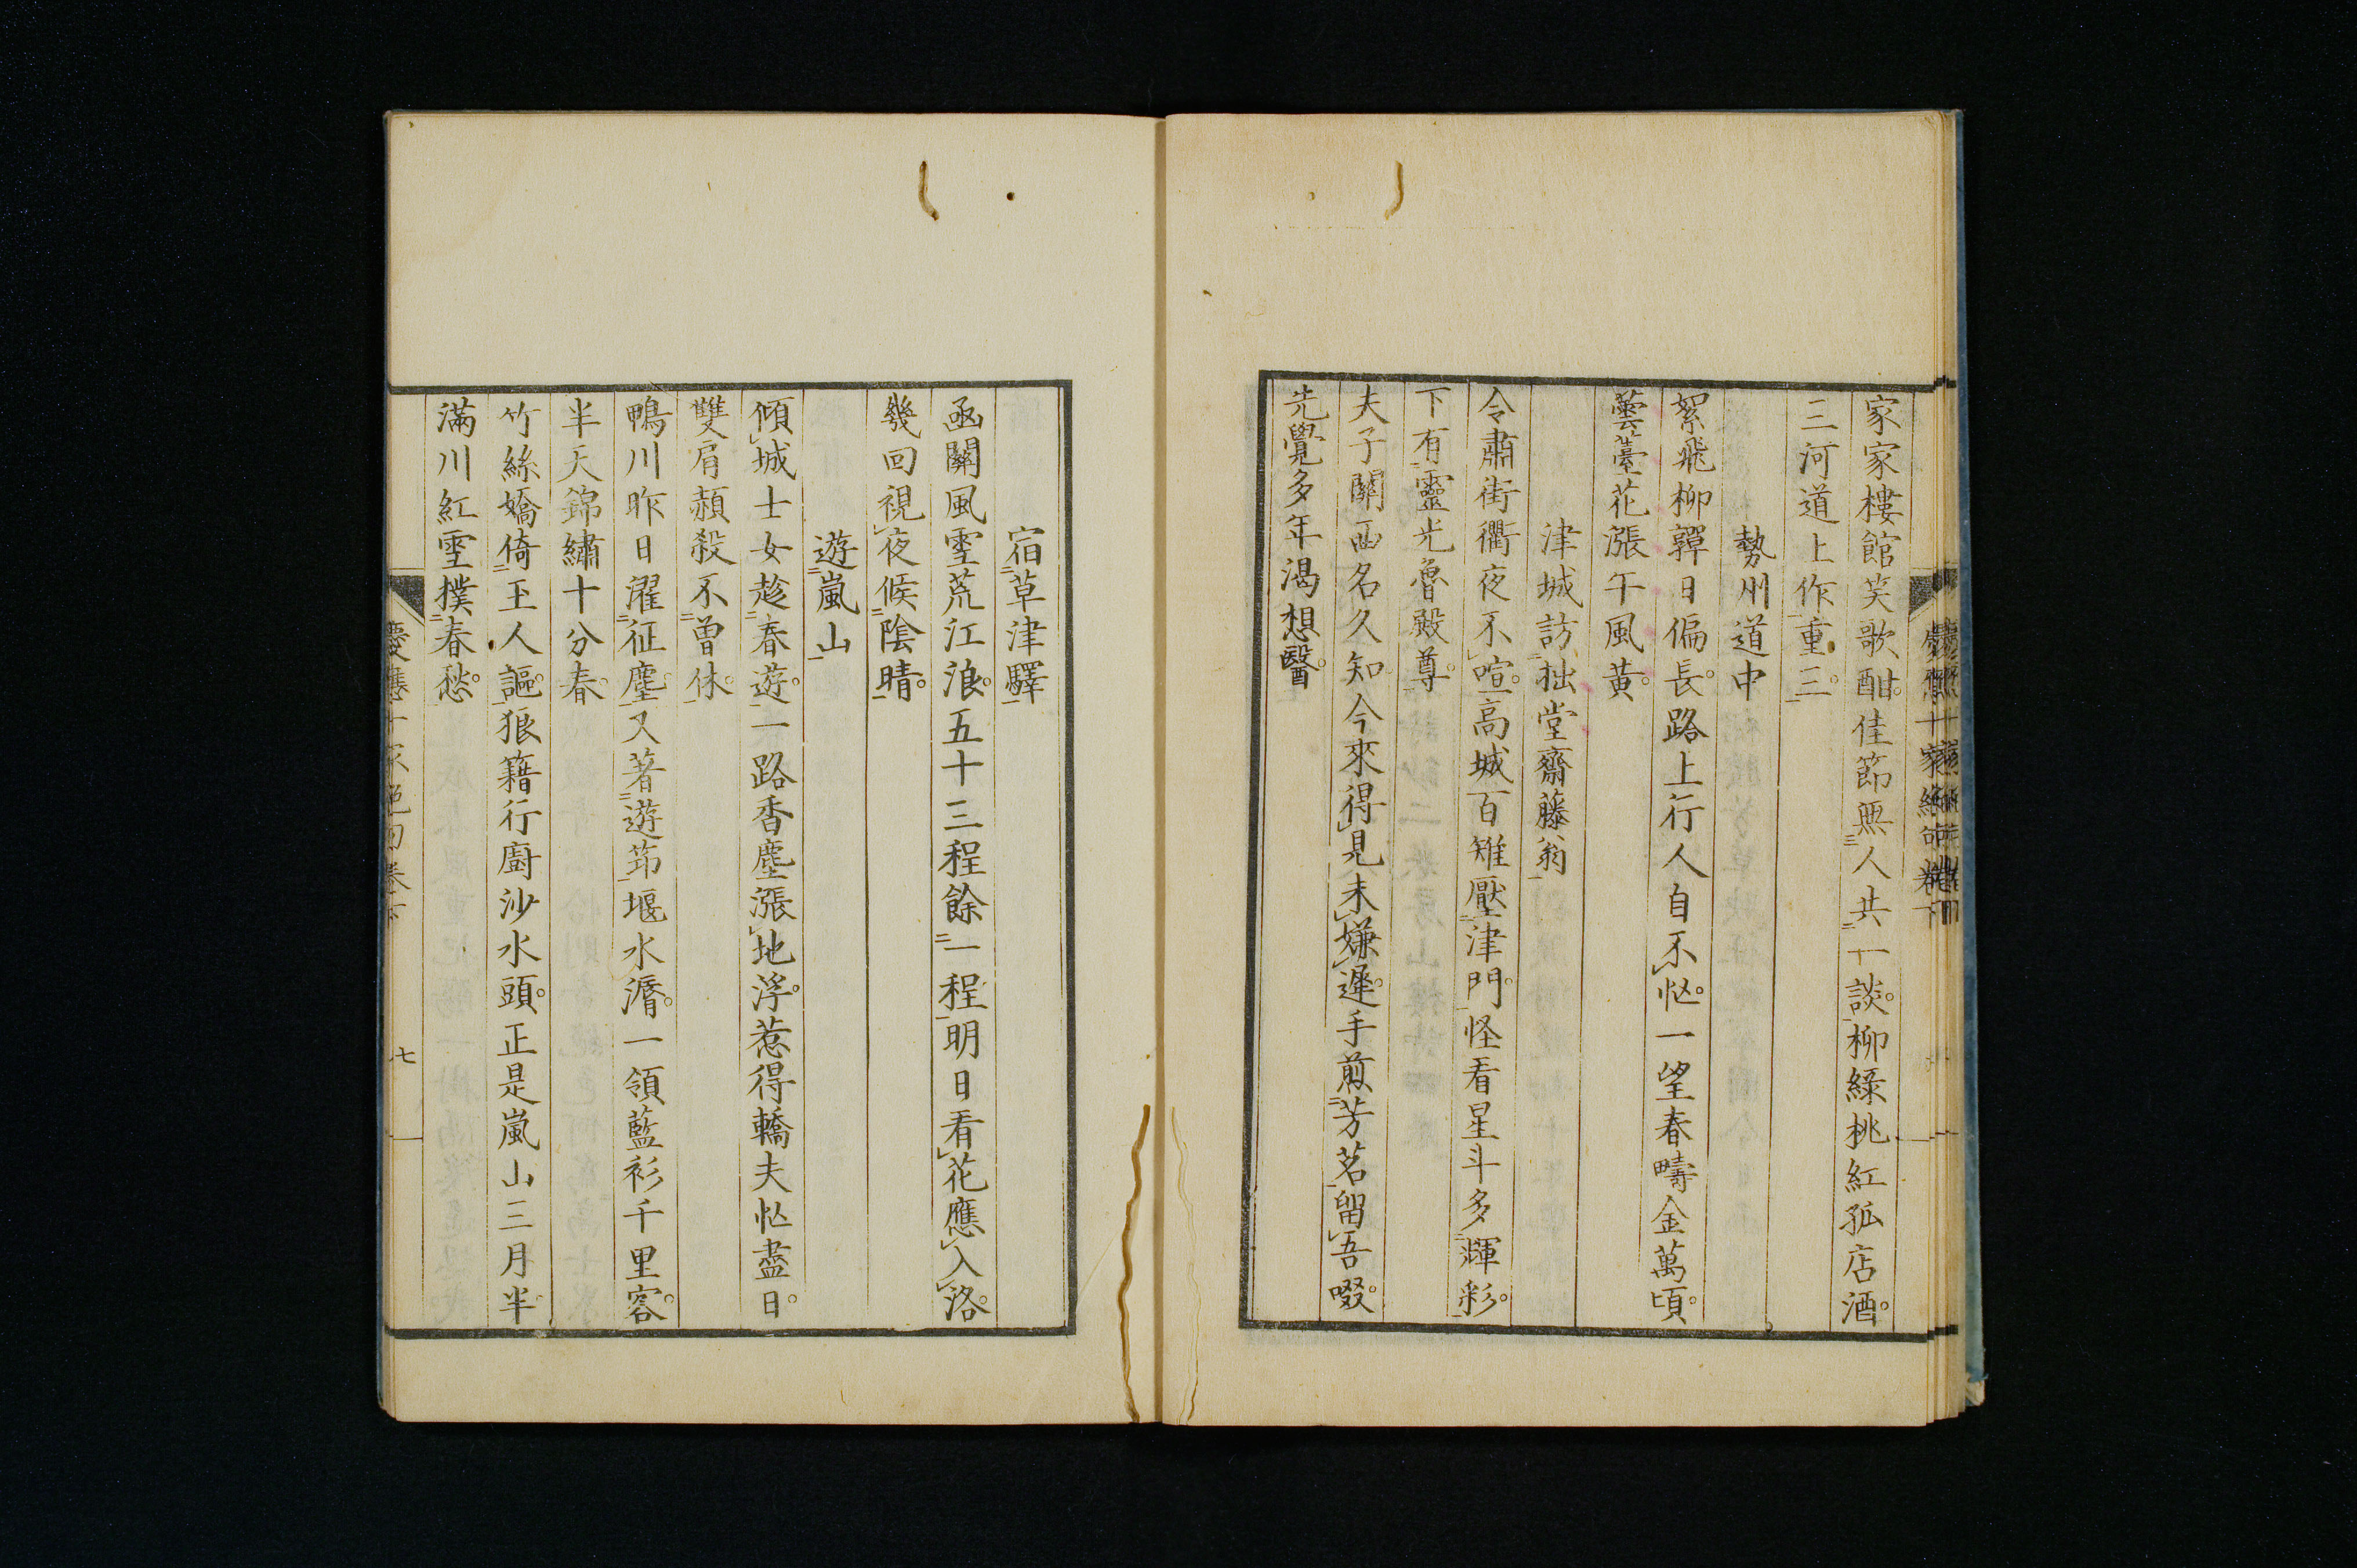 家家樓館笑歌酣。佳節無人共一談。柳綠桃紅孤店酒。
三河道上作重三。
勢州道中
絮飛柳嚲日偏長。路上行人自不忙。一望春疇金萬頃。
蕓薹花漲午風黃。
津城訪拙堂齋藤翁
令肅街衢夜不喧。高城百雉壓津門。怪看星斗多輝彩。
下有靈光魯殿尊。
夫子關西名久知。今來得見未嫌遲。手煎芳茗留吾啜。
先覺多年渴想醫。
宿草津驛
凾關風雪荒江浪。五十三程餘一程。明日看花應入洛。
幾回視夜候陰晴。
遊嵐山
傾城士女趁春遊。一路香塵漲地浮。惹得轎夫忙盡日。
雙肩赬殺不曾休。
鴨川昨日濯征塵。又著遊筇堰水濱。一領藍衫千里客。
半天錦繡十分春。
竹絲嬌倚玉人謳。狼籍行廚沙水頭。正是嵐山三月半。
滿川紅雪撲春愁。
慶應十家絕句卷下
七